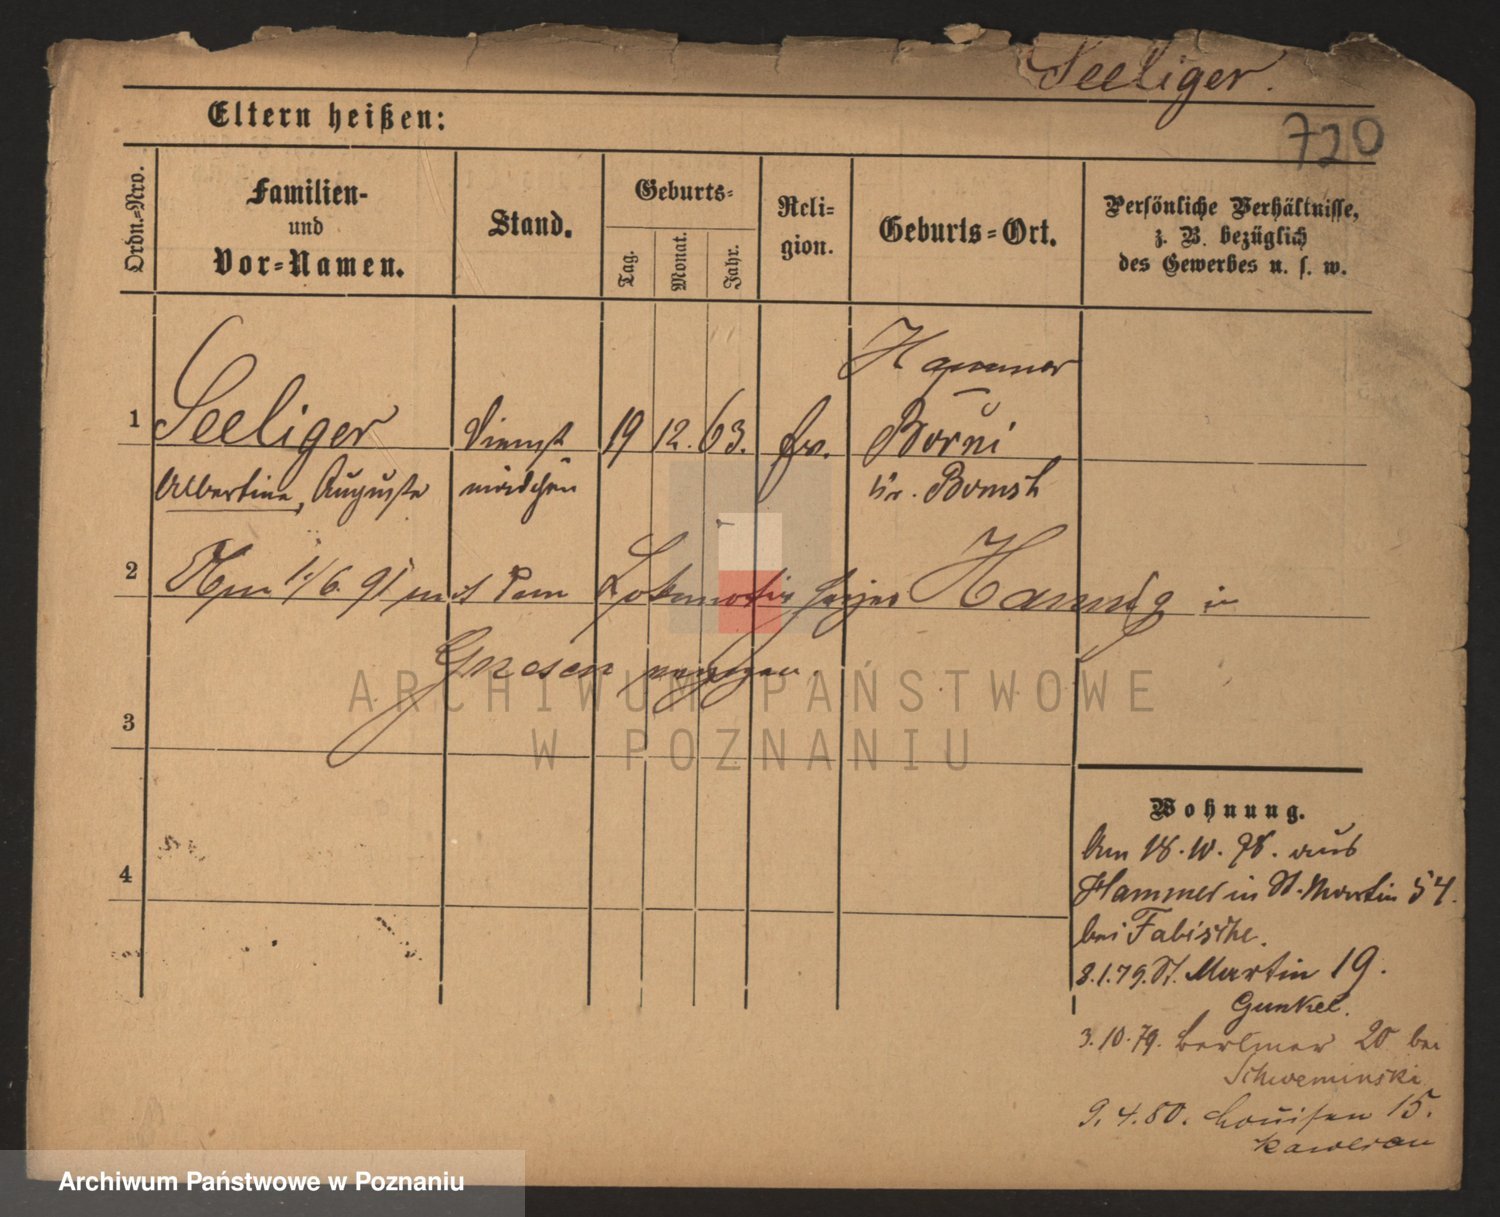 Seeliger.
720
Eltern heißen:
Ordn.-Nro.
Familien-
und
Vor-Namen.
Stand.
Geburts-
Tag.
Monat.
Jahr.
Reli-
gion.
Geburts-Ort.
Persönliche Verhältnisse,
z. B. bezüglich
des Gewerbes u. s. w.
Hammer
1 Seeliger Dienst 19 12. 63. ev. Borui
Albertine, Auguste mädchen Kr. Bomst
2 Am 1./6. 91 mit dem Lokomotiv heizer Hannig in
Gnesen
3
4
Wohnung.
Am 18. 10. 78. aus
Hammer in St. Martin 54.
bei Fabische.
8.1.79. St. Martin 19.
Gunkel.
3.10.79. Berliner 20 bei
Schweminski
9.4.80. Louisen 15.
ARCHIWUM PAŃSTWOWE
W POZNANIU
Archiwum Państwowe w Poznaniu